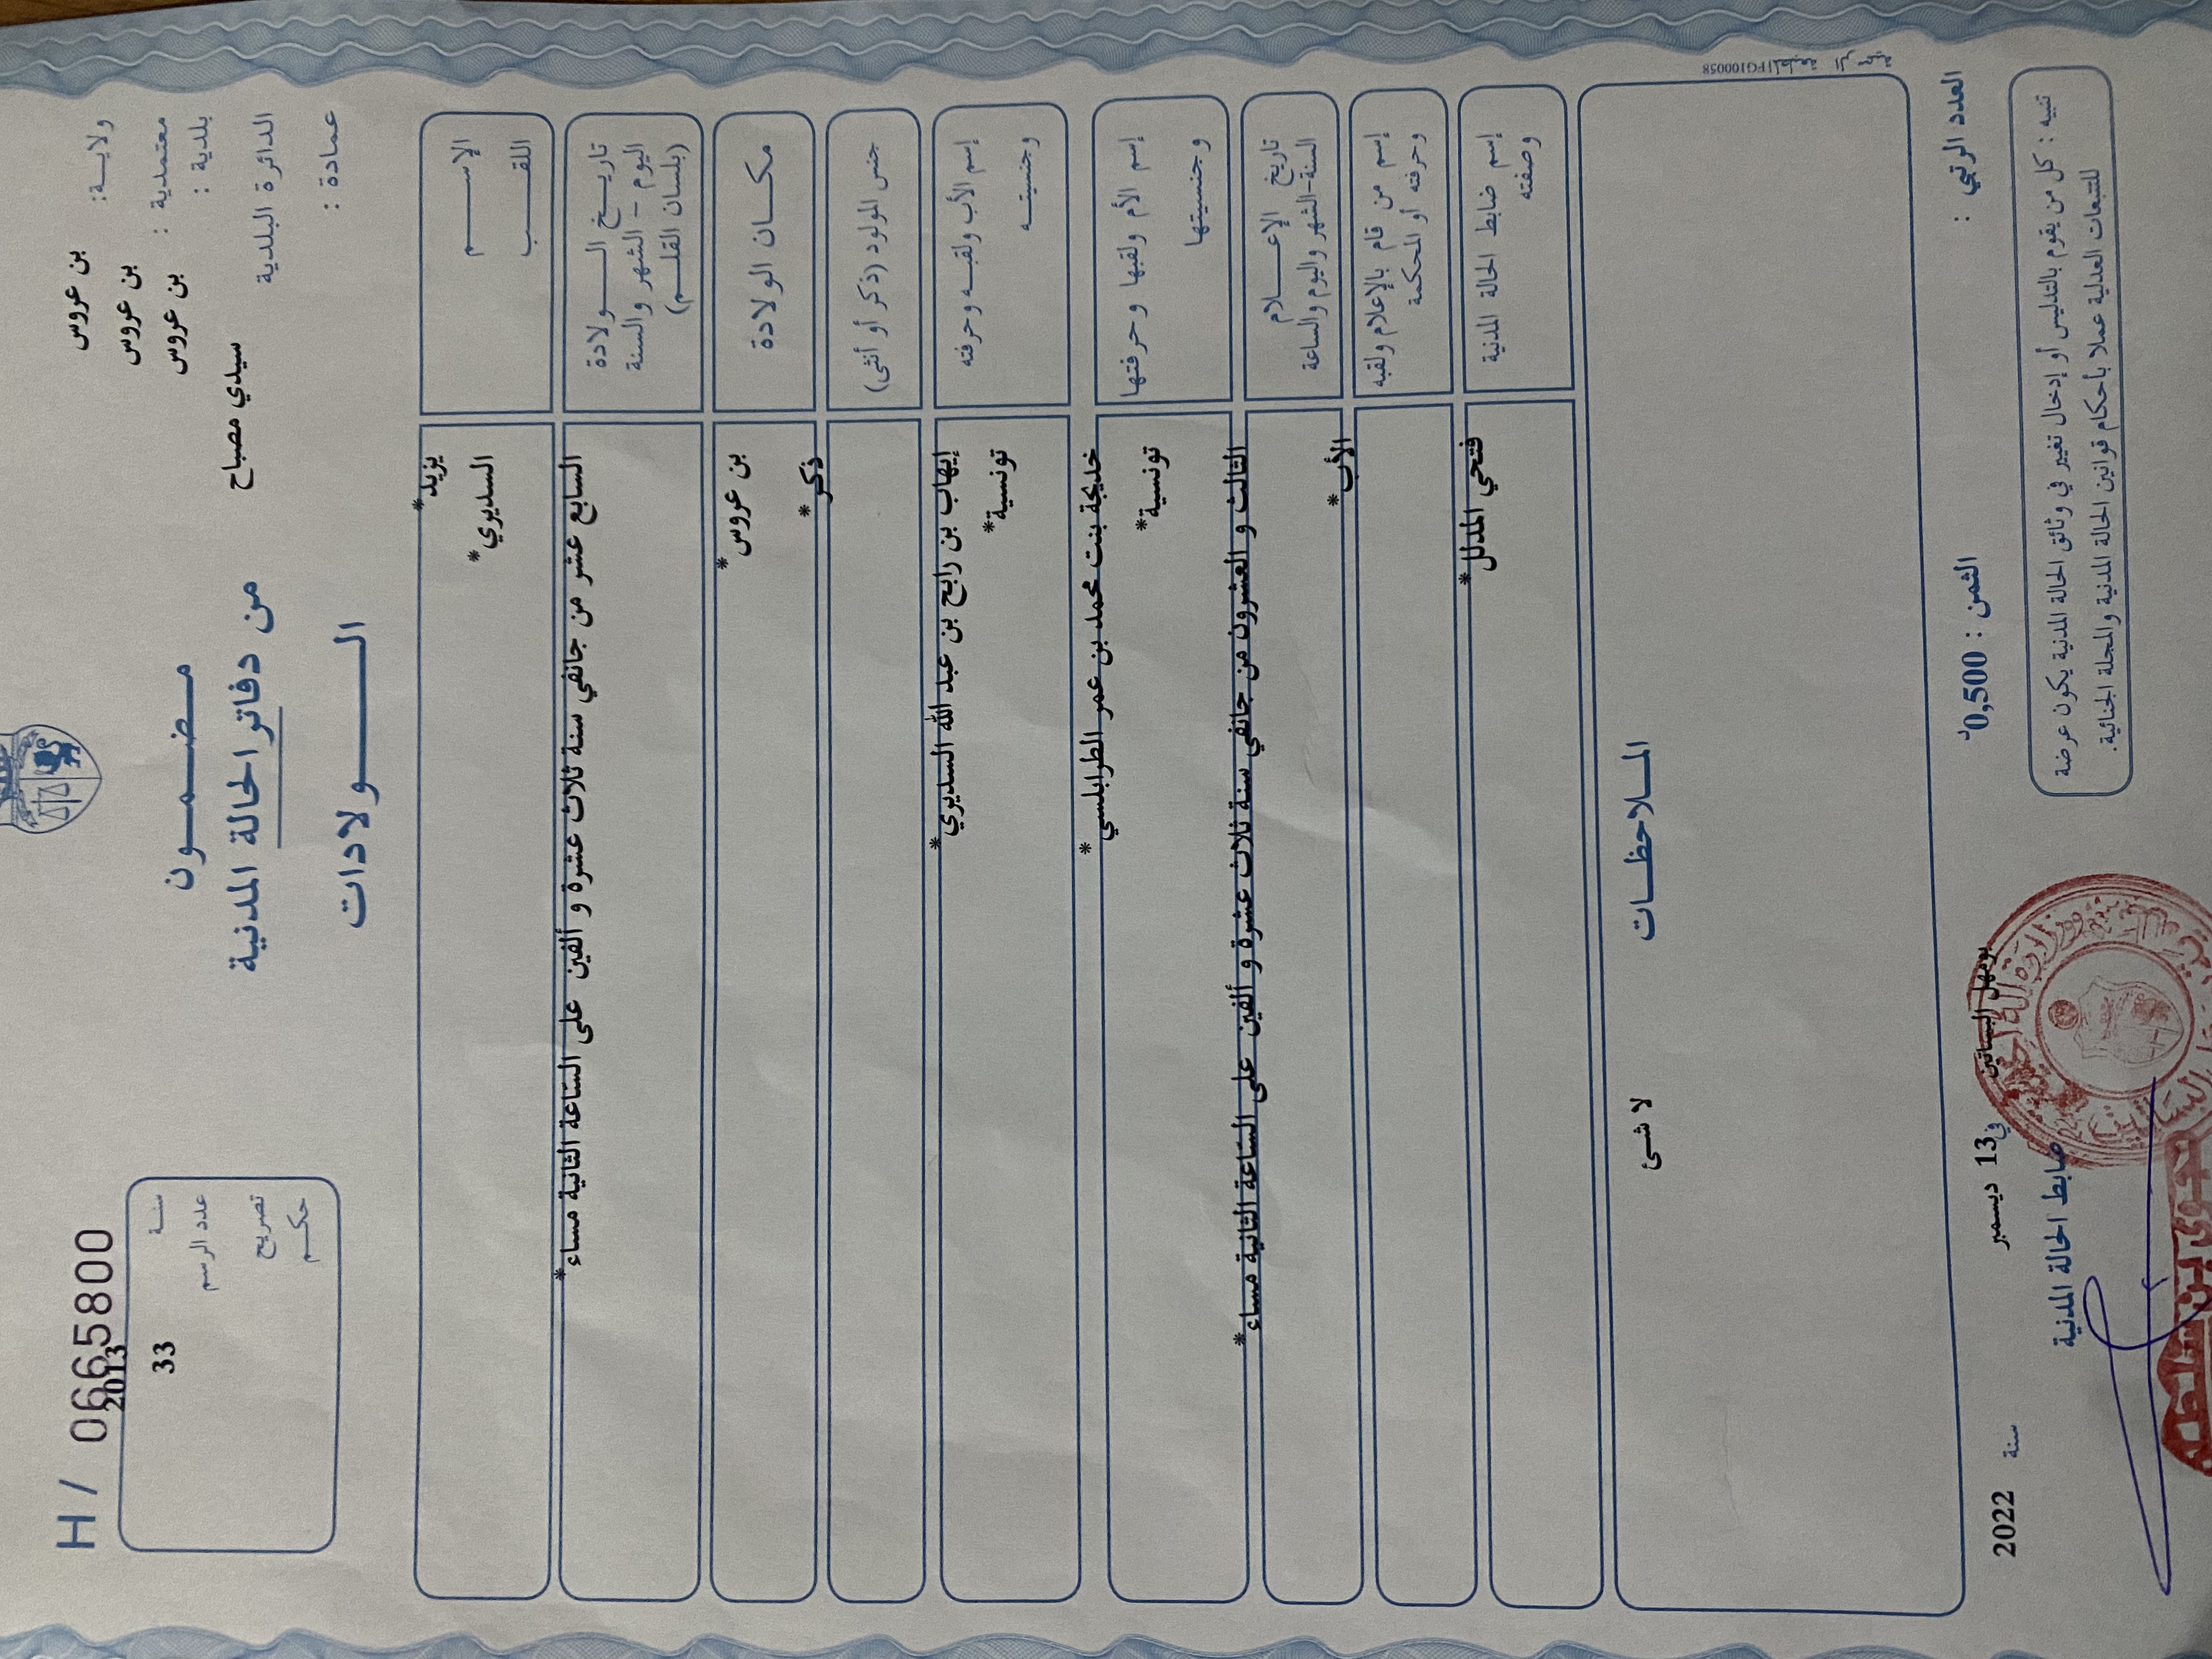 H / 0665800
ولايـة: بن عروس
معتمدية : بن عروس
بلدية : بن عروس
الدائرة البلدية سيدي مصباح
عمادة :
مـضـمـون
من دفاتر الحالة المدنية
الـولادات
سنـة 2013
عدد الرسم 33
تصريح
حكـم
الإسـم يزيد*
اللقـب السديري*
تاريـخ الـولادة
اليوم - الشهر والسنة
(بلسان القلـم)
السابع عشر من جانفي سنة ثلاث عشرة و ألفين على الساعة الثانية مساء*
مكـان الولادة بن عروس*
جنس المولود (ذكر أو أنثى) ذكر*
إسم الأب ولقبـه وحرفته إيهاب بن رابح بن عبد الله السديري*
وجنسيتـه تونسية*
إسم الأم ولقبها وحرفتها خديجة بنت محمد بن عمر الطرابلسي*
وجنسيتها تونسية*
تاريخ الإعـلام
السنة-الشهر واليوم والساعة
الثالث و العشرون من جانفي سنة ثلاث عشرة و ألفين على الساعة الثانية مساء*
إسم من قام بالإعلام ولقبه الأب*
وحرفته أو المحكمة
إسم ضابط الحالة المدنية فتحي المدلل*
وصفته
المـلاحظـات
لا شئ
العدد الرتبي :
الثمن : 0,500د
بومهل البساتين في 13 ديسمبر سنة 2022
ضابط الحالة المدنية
تنبيه : كل من يقوم بالتدليس أو إدخال تغيير في وثائق الحالة المدنية يكون عرضة
للتتبعات العدلية عملا بأحكام قوانين الحالة المدنية والمجلة الجنائية.